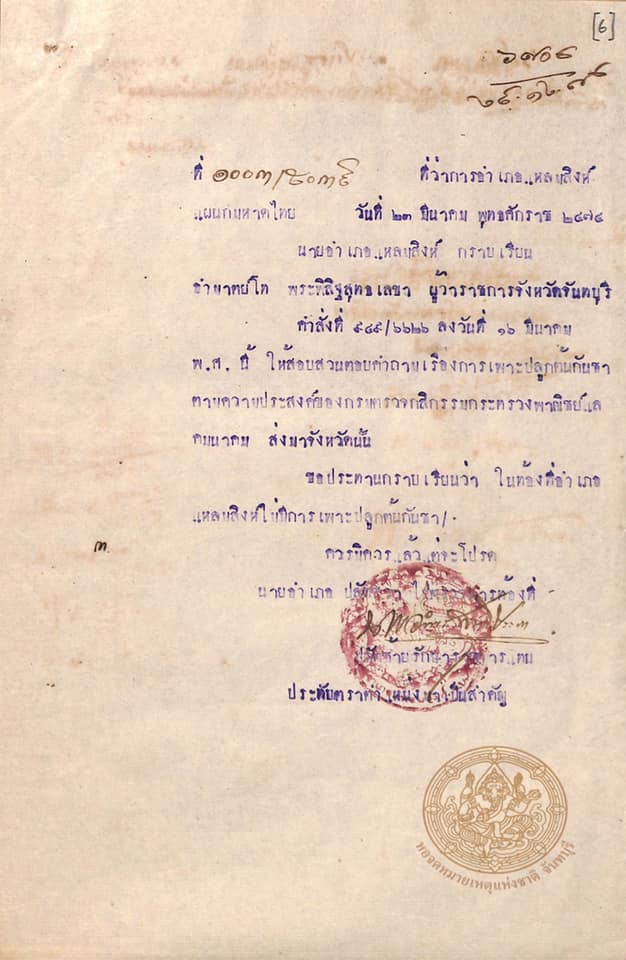 [6]
ที่ ๑๐๐๓/๕๐๓๕ ที่ว่าการอำเภอแหลมสิงห์
แผนกมหาดไทย วันที่ ๒๓ มีนาคม พุทธศักราช ๒๔๗๔
นายอำเภอแหลมสิงห์ กราบเรียน
อำมาตย์โท พระพิสิฐสุทธเลขา ผู้ว่าราชการจังหวัดจันทบุริ
คำสั่งที่ ๕๔๙/๖๖๒๖ ลงวันที่ ๑๖ มีนาคม
พ.ศ. นี้ ให้สอบสวนตอบคำถามเรื่องการเพาะปลูกต้นกันชา
ตามความประสงค์ของกรมตรวจกสิกรรมกระทรวงพาณิชย์แล
คมนาคม ส่งมาจังหวัดนั้น
ขอประทานกราบเรียนว่า ในท้องที่อำเภอ
แหลมสิงห์ไม่มีการเพาะปลูกต้นกันชา/.
ควรมิควรแล้วแต่จะโปรด
นายอำเภอ ไปตรวจการท้องที่
ปลัดซ้ายรักษาราชการแทน
ประทับตราตำแหน่งมาเป็นสำคัญ
ท.
หอจดหมายเหตุแห่งชาติ จันทบุรี